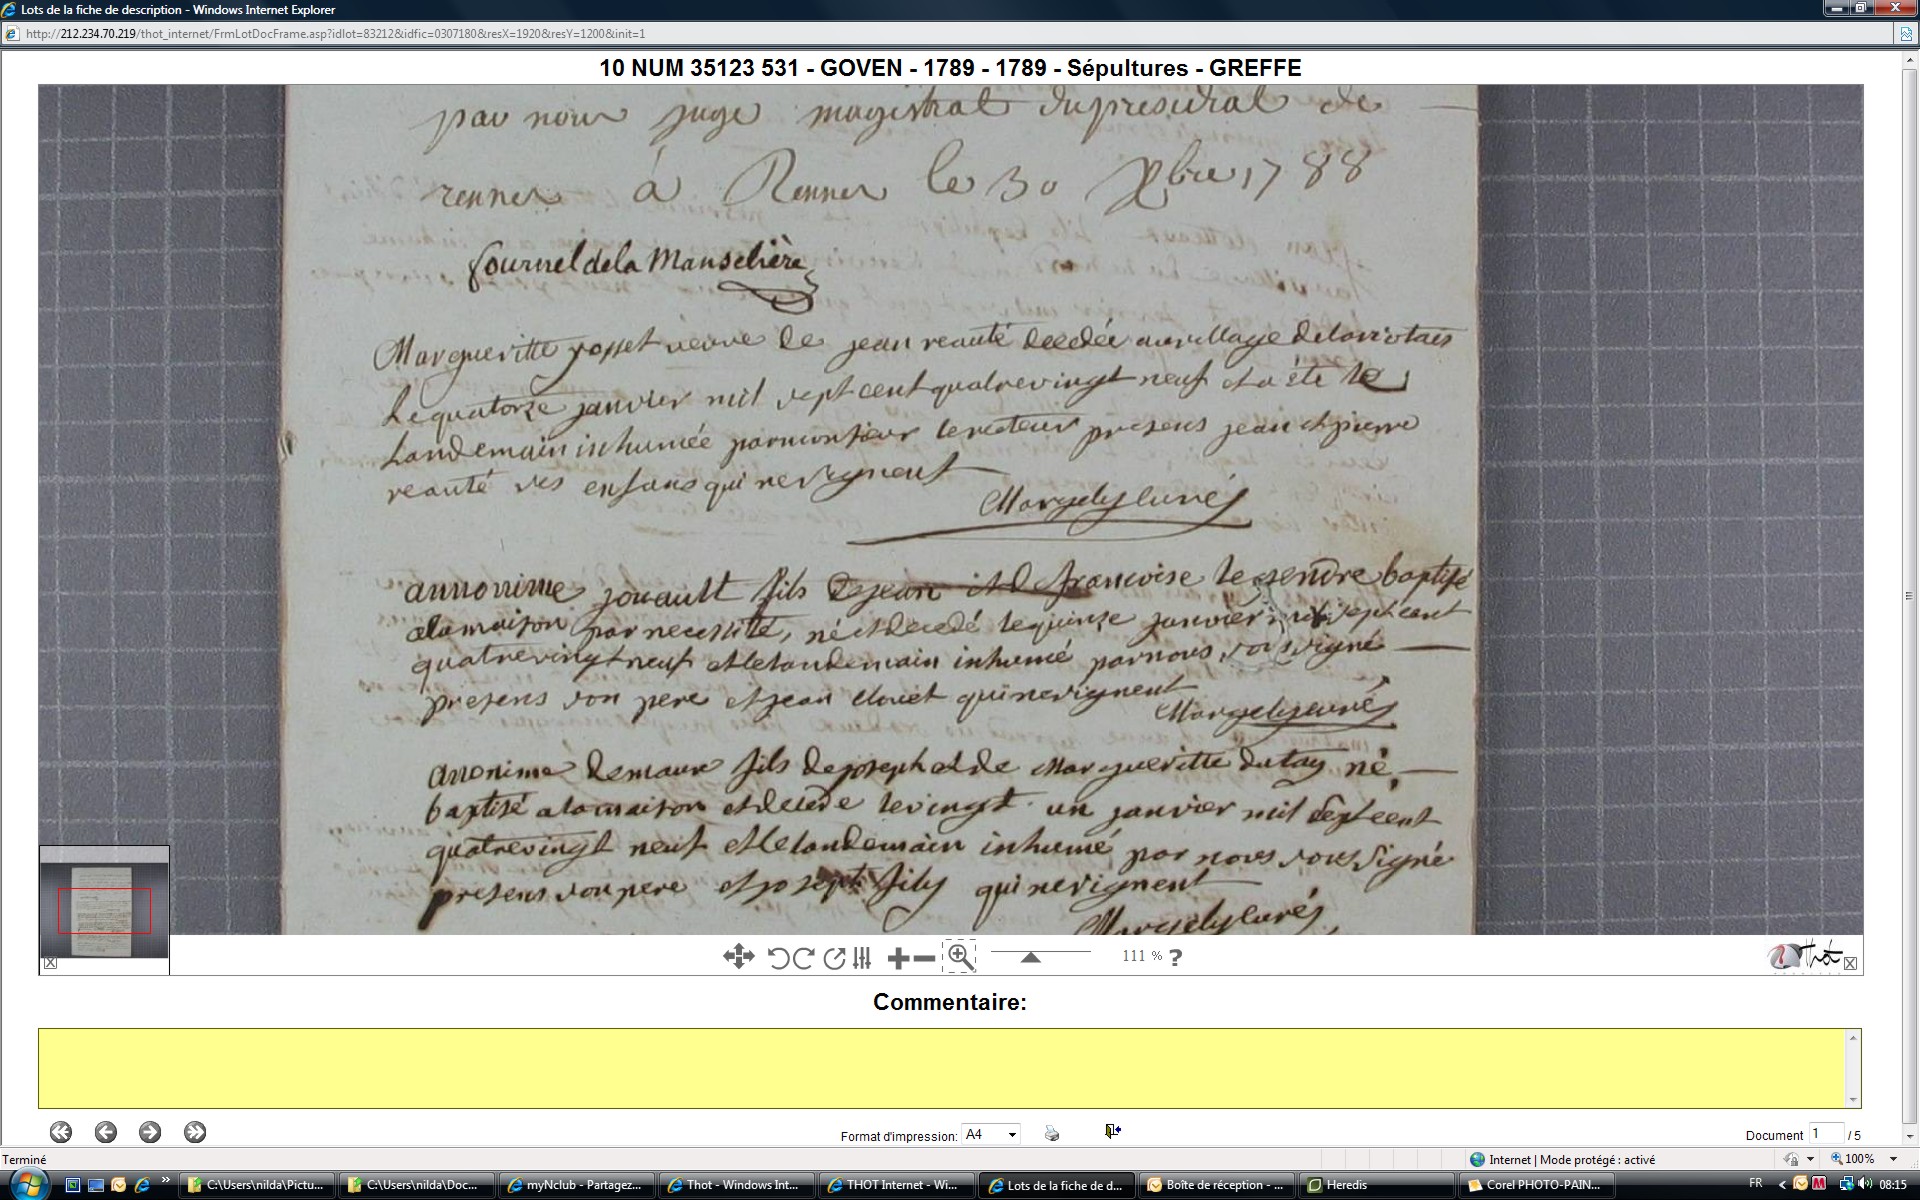 Lots de la fiche de description - Windows Internet Explorer
http://212.234.70.219/thot_internet/FrmLotDocFrame.asp?idlot=83212&idfic=0307180&resX=1920&resY=1200&init=1
10 NUM 35123 531 - GOVEN - 1789 - 1789 - Sépultures - GREFFE
par nous juge magistrat du presidial de
rennes à Rennes le 30 Xbre 1788
fournel de la Manselière
Margueritte posset veuve de jean reauté decedée au village
le quatorze janvier mil sept cent quatrevingt neuf et a été le
landemain inhumée par monsieur le recteur presens jean et pierre
reauté ses enfans qui ne signent
Margely curé
annonime jouault fils de jean et de francoise le gendre baptisé
a la maison par necessité, né et decedé le quinze janvier mil sept cent
quatrevingt neuf et le landemain inhumé par nous soussigné
presens son pere et jean qui ne signent
Margely curé
anonime demaure fils de joseph et de Margueritte dutay né,
baptisé a la maison et decedé le vingt un janvier mil sept cent
quatrevingt neuf et le landemain inhumé par nous sous Signé
presens son pere et qui ne signent
Margely curé
111 % ?
Thot
Commentaire:
Format d'impression: A4
Document 1 / 5
Terminé
Internet | Mode protégé : activé
100%
C:\Users\nilda\Pictu...
C:\Users\nilda\Doc...
myNclub - Partagez...
Thot - Windows Int...
THOT Internet - Wi...
Lots de la fiche de d...
Boîte de réception - ...
Heredis
Corel PHOTO-PAIN...
FR
08:15